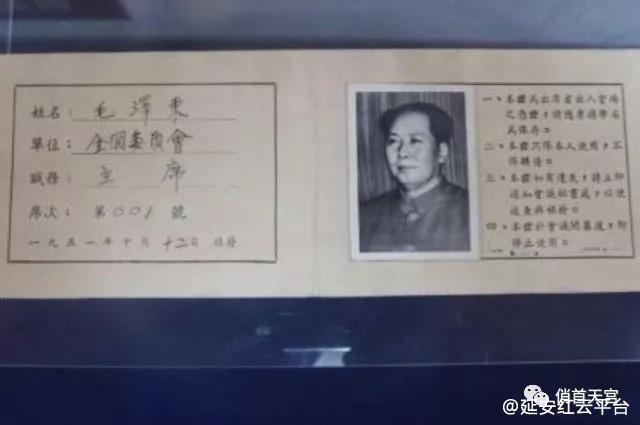 姓名：毛澤東
單位：全國委員會
職務：主席
席次：第001號
一九五一年十月十二日填發
一、本證爲出席者出入會場
之憑證，請隨身攜帶妥
爲保存。
二、本證只限本人使用，不
得轉借。
三、本證如有遺失，請立即
通知會議秘書處，以便
四、本證於會議閉幕後，即
停止使用。
俏首天宫
@延安红云平台